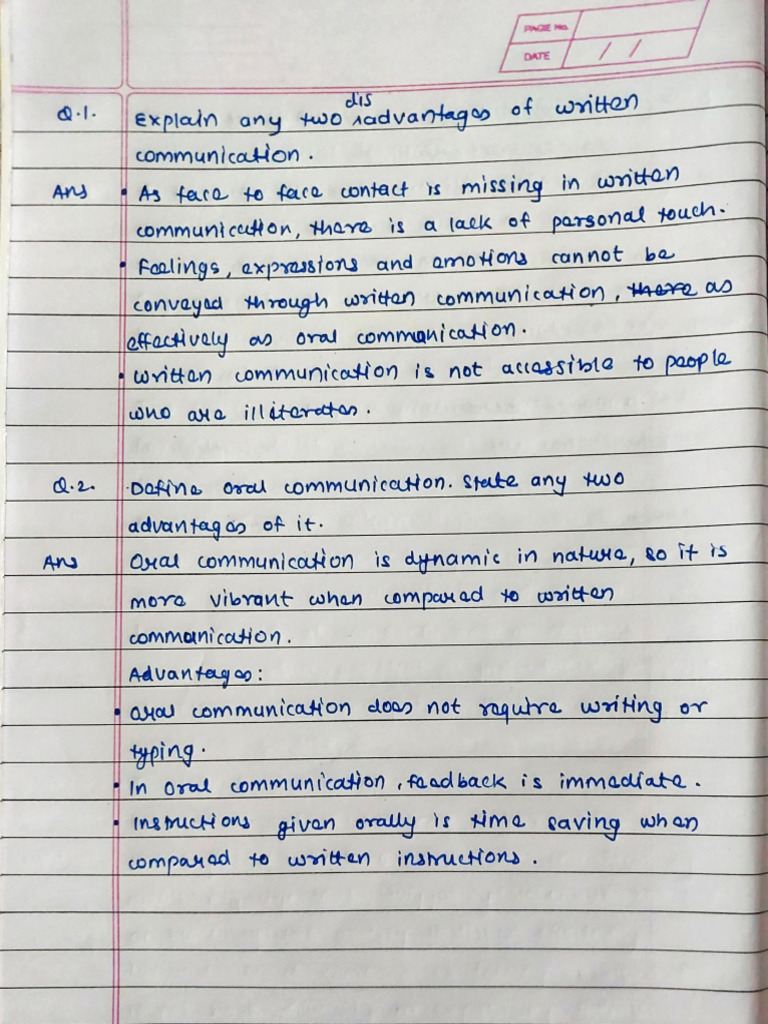 PAGE No.
DATE / /
Q.1. Explain any two disadvantages of written
communication.
Ans • As face to face contact is missing in written
communication, there is a lack of personal touch.
• Feelings, expressions and emotions cannot be
conveyed through written communication, there as
effectively as oral communication.
• Written communication is not accessible to people
who are illiterates.
Q.2. Define oral communication. State any two
advantages of it.
Ans Oral communication is dynamic in nature, so it is
more vibrant when compared to written
communication.
Advantages:
• Oral communication does not require writing or
typing.
• In oral communication, feedback is immediate.
• Instructions given orally is time saving when
compared to written instructions.